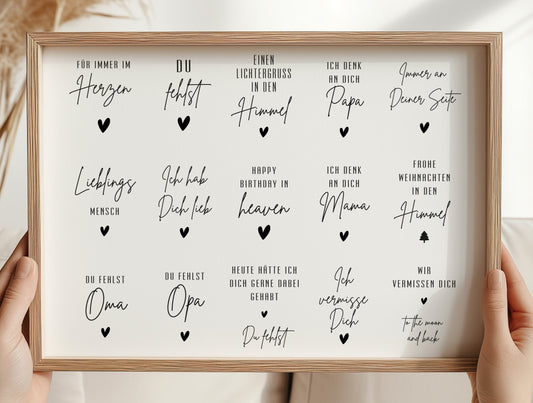 FÜR IMMER IM
Herzen
DU
fehlst
EINEN
LICHTERGRUSS
IN DEN
Himmel
ICH DENK
AN DICH
Papa
Immer an
Deiner Seite
Lieblings
MENSCH
Ich hab
Dich lieb
HAPPY
BIRTHDAY IN
heaven
ICH DENK
AN DICH
Mama
FROHE
WEIHNACHTEN
IN DEN
Himmel
DU FEHLST
Oma
DU FEHLST
Opa
HEUTE HÄTTE ICH
DICH GERNE DABEI
GEHABT
Du fehlst
Ich
vermisse
Dich
WIR
VERMISSEN DICH
to the moon
and back